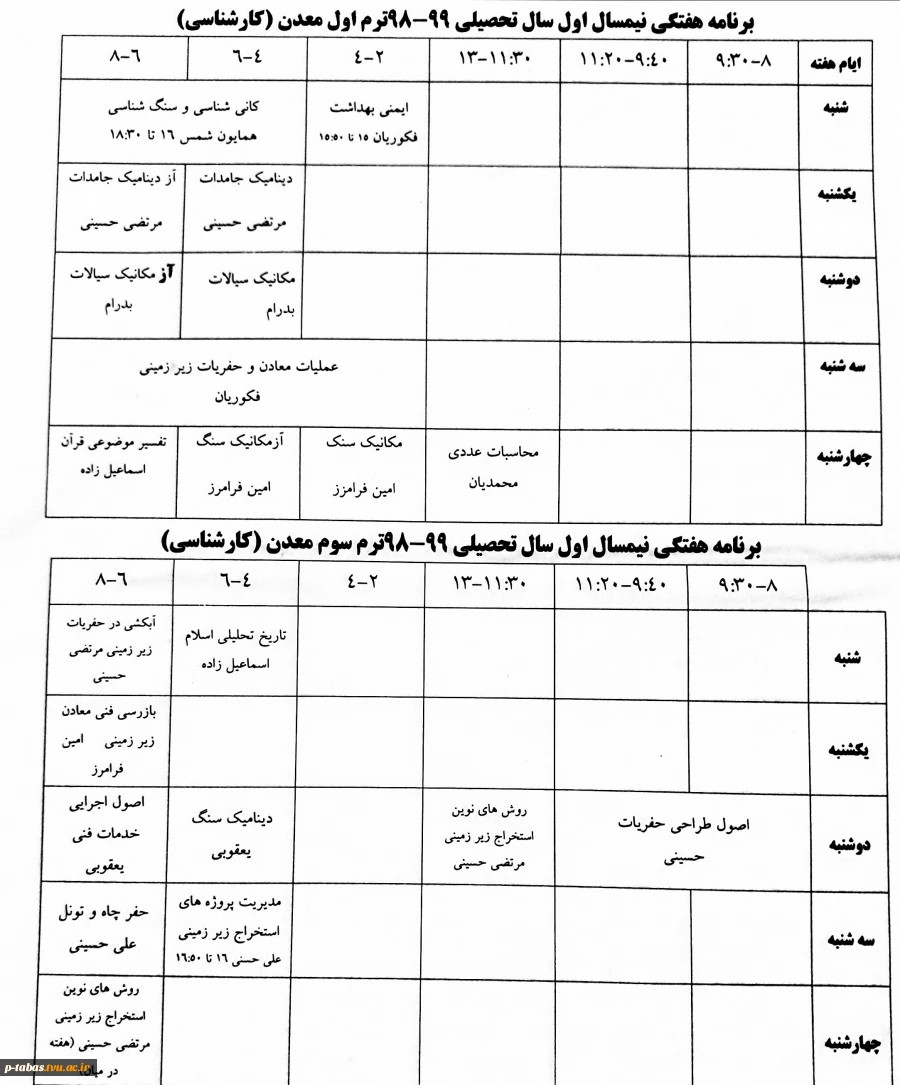 برنامه هفتگی نیمسال اول سال تحصیلی ۹۹-۹۸ترم اول معدن (کارشناسی)
ایام هفته ۸-۹:۳۰ ۹:۴۰-۱۱:۲۰ ۱۱:۳۰-۱۳ ۲-۴ ۴-۶ ۶-۸
شنبه
ایمنی بهداشت
فکوریان ۱۵ تا ۱۵:۵۰
کانی شناسی و سنگ شناسی
همایون شمس ۱۶ تا ۱۸:۳۰
یکشنبه
دینامیک جامدات
مرتضی حسینی
آز دینامیک جامدات
مرتضی حسینی
دوشنبه
مکانیک سیالات
بدرام
آز مکانیک سیالات
بدرام
سه شنبه
عملیات معادن و حفریات زیر زمینی
فکوریان
چهارشنبه
محاسبات عددی
محمدیان
مکانیک سنک
امین فرامزز
آزمکانیک سنگ
امین فرامرز
تفسیر موضوعی قرآن
اسماعیل زاده
برنامه هفتگی نیمسال اول سال تحصیلی ۹۹-۹۸ترم سوم معدن (کارشناسی)
۸-۹:۳۰ ۹:۴۰-۱۱:۲۰ ۱۱:۳۰-۱۳ ۲-۴ ۴-۶ ۶-۸
شنبه
تاریخ تحلیلی اسلام
اسماعیل زاده
آبکشی در حفریات
زیر زمینی مرتضی
حسینی
یکشنبه
بازرسی فنی معادن
زیر زمینی امین
فرامرز
دوشنبه
اصول طراحی حفریات
حسینی
روش های نوین
استخراج زیر زمینی
مرتضی حسینی
دینامیک سنگ
یعقوبی
اصول اجرایی
خدمات فنی
یعقوبی
سه شنبه
مدیریت پروژه های
استخراج زیر زمینی
علی حسنی ۱۶ تا ۱۶:۵۰
حفر چاه و تونل
علی حسینی
چهارشنبه
روش های نوین
استخراج زیر زمینی
مرتضی حسینی (هفته
در میان)
p-tabas.tvu.ac.ir